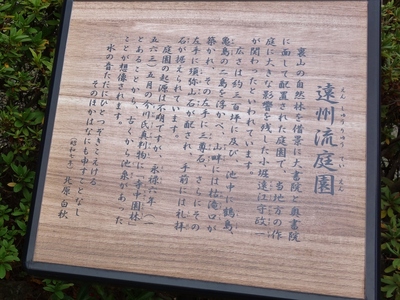 遠州流庭園
えんしゅうりゅうていえん
裏山の自然林を借景に大書院と奥書院
に面して配置された庭園は、当地方の作
庭に大きな影響を残した小堀遠江守政一
が関わったといわれています。
広さは約一百坪に及び、池中に鶴島、
亀島の二島を浮かべ、山畔には枯滝口が
築かれ、その左手に三尊石、さらにその
左手に須弥山石が配され、手前には礼拝
石が据えられています。
庭園の起源は不明ですが、永禄六年(一
五六三)五月の今川氏真判物に「寺中園林」
とあることから、古くから池泉があった
ことが想像されます。
水の音ただにひとつぞきこえける
そのほかはなにも申すことなし
昭和七年 北原白秋